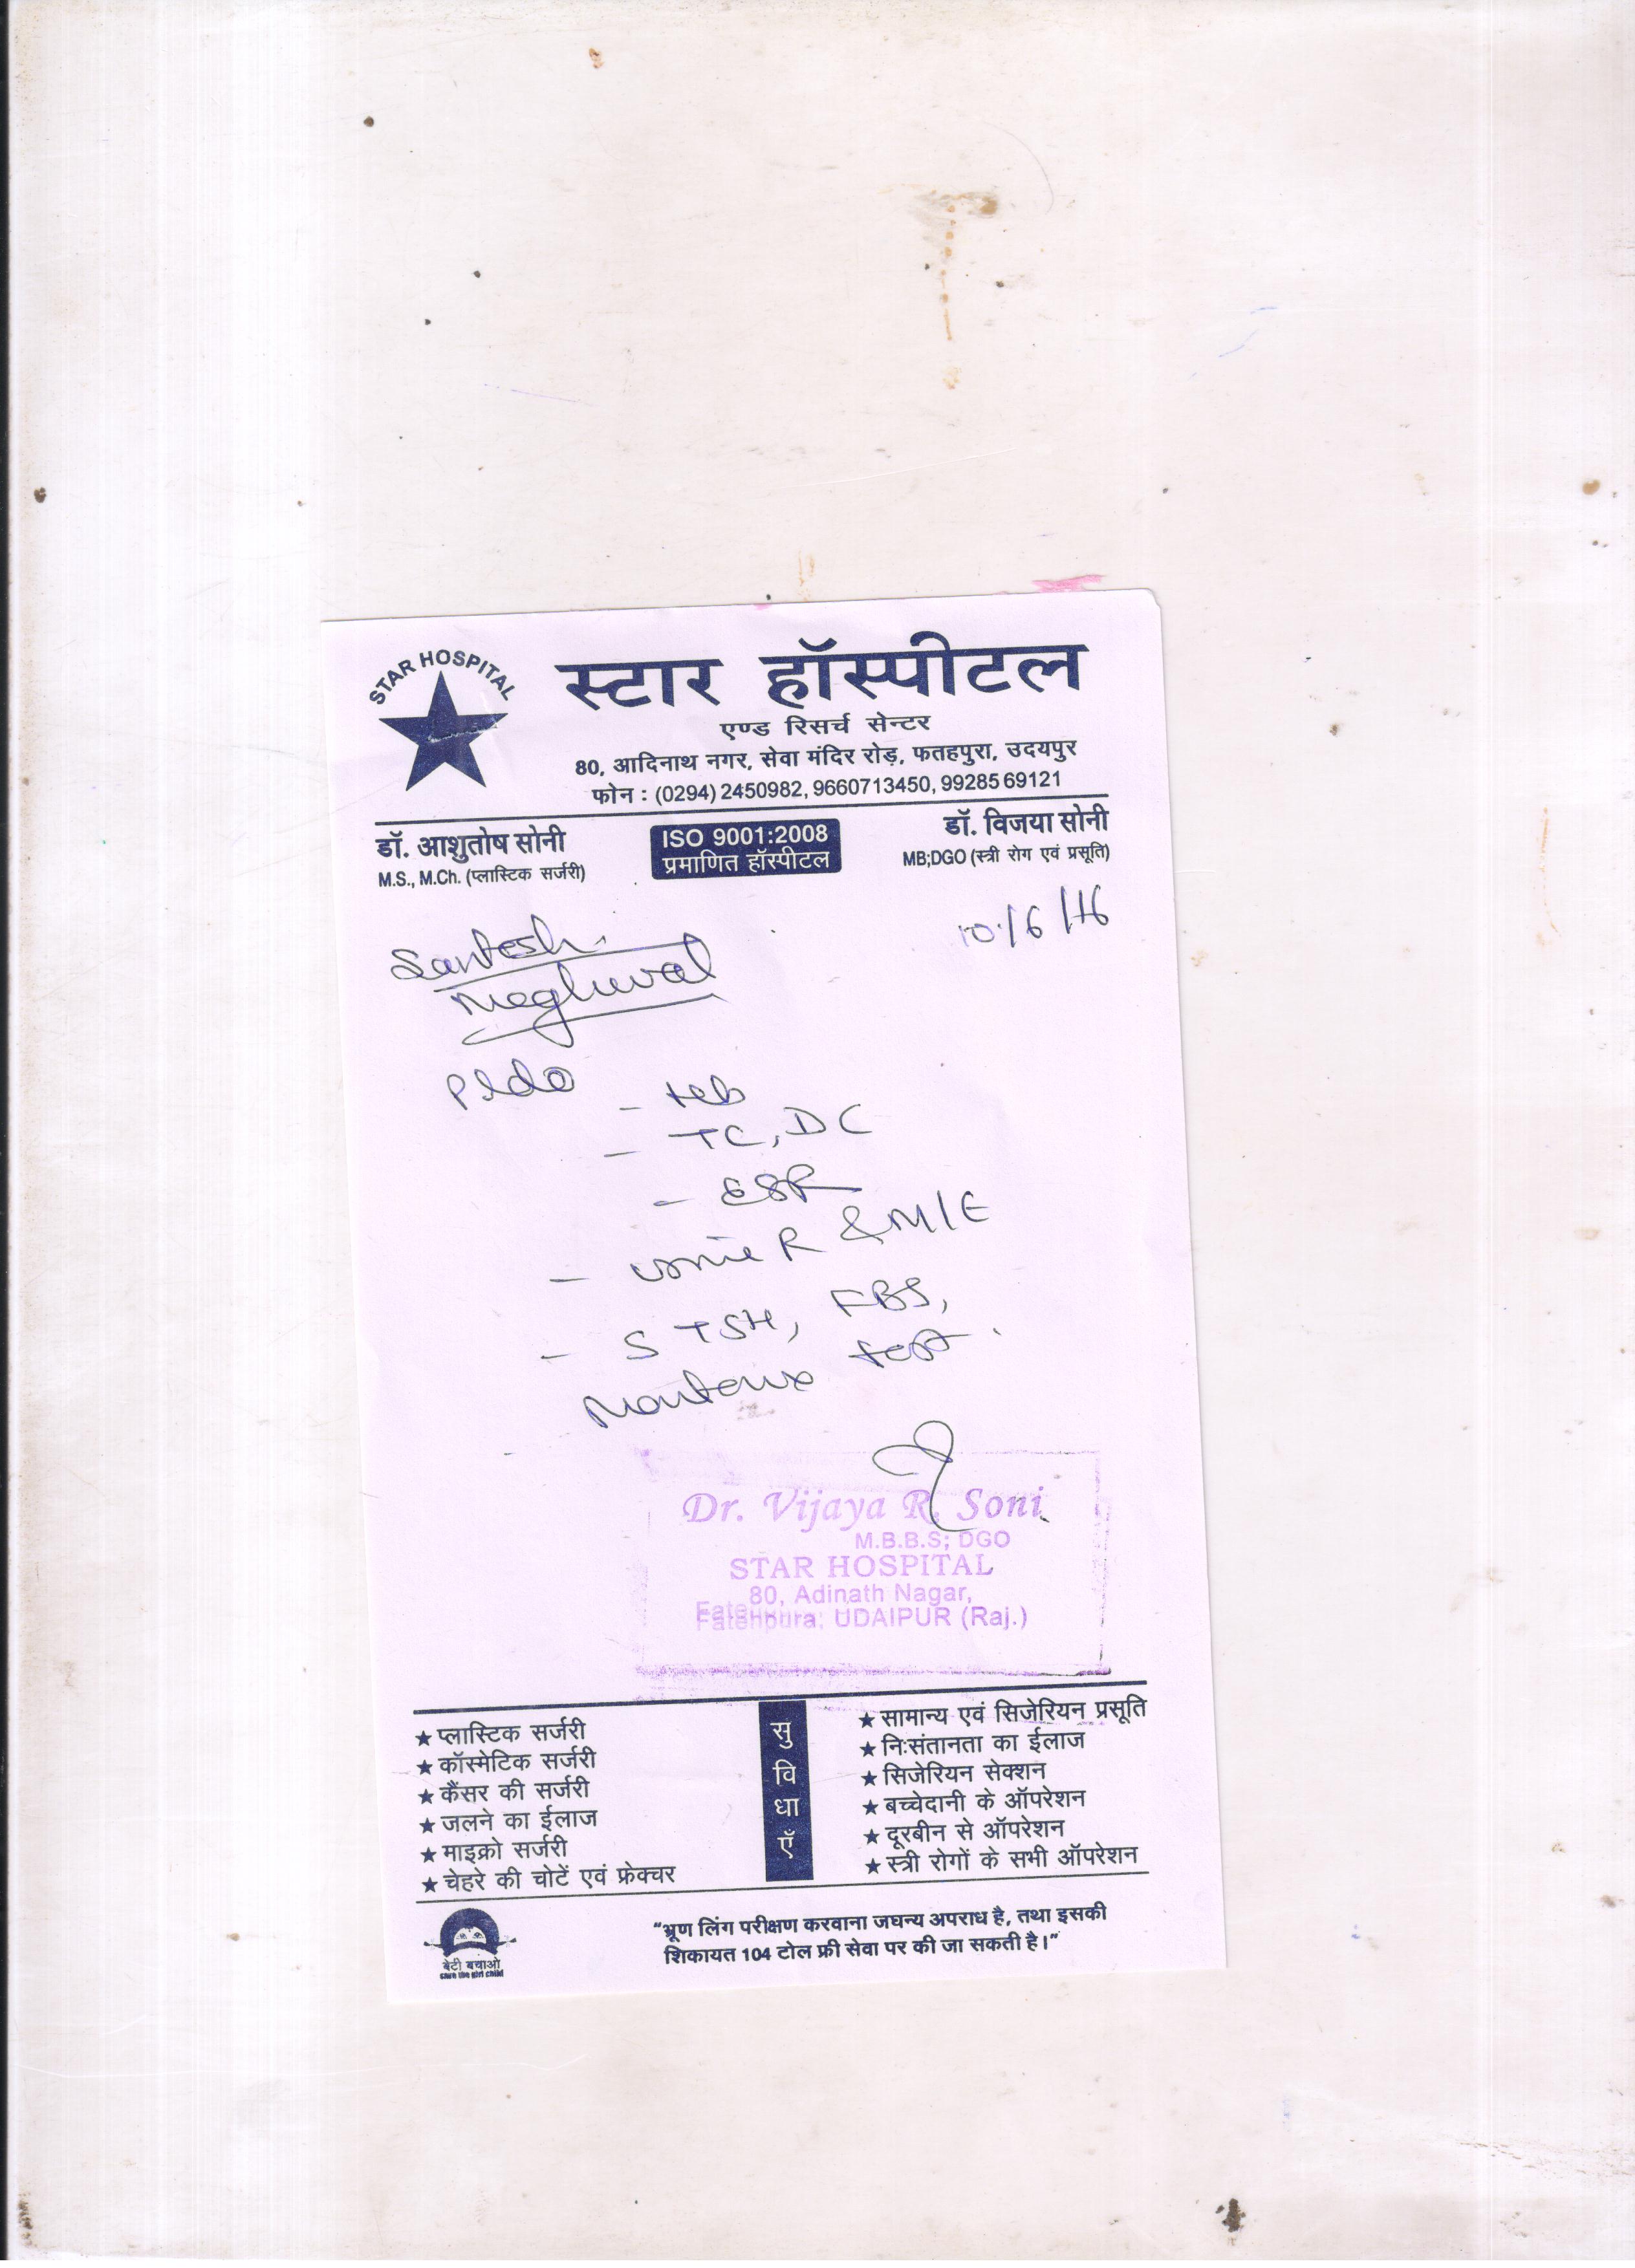 STAR HOSPITAL
स्टार हॉस्पीटल
एण्ड रिसर्च सेन्टर
80, आदिनाथ नगर, सेवा मंदिर रोड़, फतहपुरा, उदयपुर
फोन : (0294) 2450982, 9660713450, 9928569121
डॉ. आशुतोष सोनी
M.S., M.Ch. (प्लास्टिक सर्जरी)
ISO 9001:2008
प्रमाणित हॉस्पीटल
डॉ. विजया सोनी
MB;DGO (स्त्री रोग एवं प्रसूति)
10/6/16
Santosh
Meghwal
Pl do
- Hb
- TC, DC
- ESR
- Urine R & M/E
- S TSH, FBS,
Montoux test.
Dr. Vijaya R. Soni
M.B.B.S; DGO
STAR HOSPITAL
80, Adinath Nagar,
Fatehpura, UDAIPUR (Raj.)
सुविधाएँ
★ प्लास्टिक सर्जरी
★ कॉस्मेटिक सर्जरी
★ कैंसर की सर्जरी
★ जलने का ईलाज
★ माइक्रो सर्जरी
★ चेहरे की चोटें एवं फ्रेक्चर
★ सामान्य एवं सिजेरियन प्रसूति
★ निःसंतानता का ईलाज
★ सिजेरियन सेक्शन
★ बच्चेदानी के ऑपरेशन
★ दूरबीन से ऑपरेशन
★ स्त्री रोगों के सभी ऑपरेशन
बेटी बचाओ
save the girl child
“भ्रूण लिंग परीक्षण करवाना जघन्य अपराध है, तथा इसकी
शिकायत 104 टोल फ्री सेवा पर की जा सकती है।”